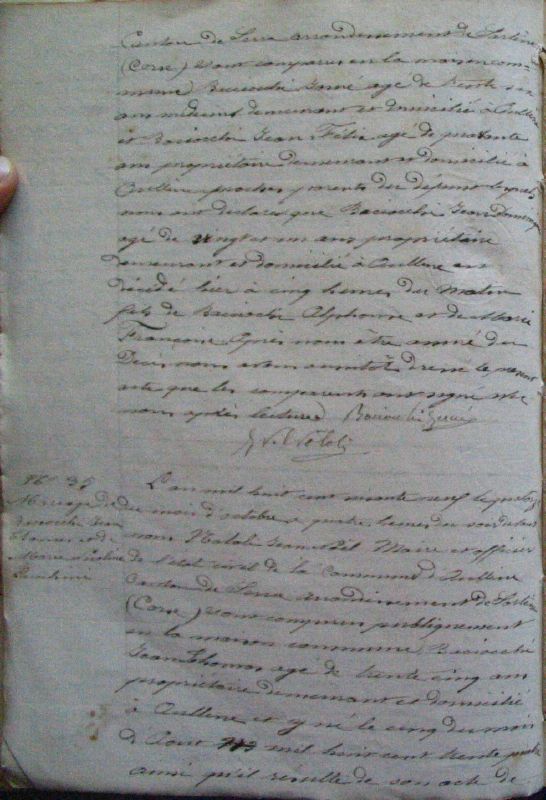 Canton de Serra arrondissement de Sartène
(Corse) sont comparus en la maison com-
mune Baciocchi age de trente six
ans médecin demeurant et domicilié à Aullène
et Baciocchi Jean Félix agé de quarante
ans propriétaire demeurant et domicilié à
Aullène proches parents du défunt lesquels
nous ont déclaré que Baciocchi Jean Dominique
agé de vingt et un ans propriétaire
demeurant et domicilié à Aullène est
décédé hier à cinq heures du matin
fils de Baciocchi Alphonse et de Marie
Françoise Après nous être assuré du
Décès nous avons aussitôt dressé le présent
acte que les comparants ont signé avec
nous après lecture Baciocchi
Natali
N° 35
Mariage de
Baciocchi Jean
Thomas et de
Marie
L'an mil huit cent soixante neuf le
du mois d'octobre a quatre heures du soir devant
nous Natali Jean Noël Maire et officier
de l'état civil de la Commune d'Aullène
Canton de Serra arrondissement de Sartène
(Corse) sont comparus publiquement
en la maison commune Baciocchi
Jean Thomas agé de trente cinq ans
propriétaire demeurant et domicilié
à Aullène et y né le cinq du mois
d'Aout mil huit cent trente quatre
ainsi qu'il résulte de son acte de